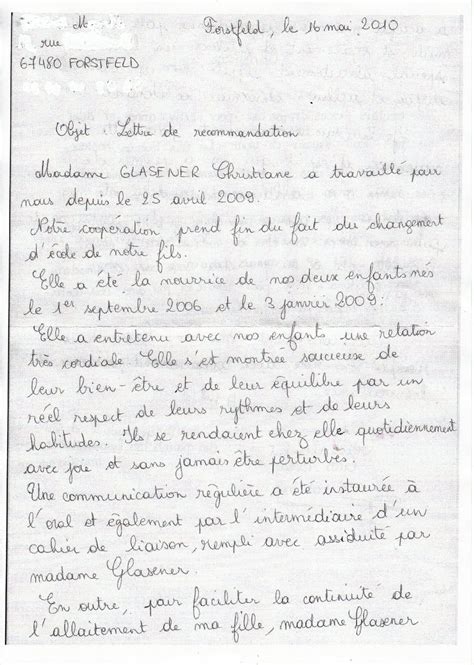 M.
Forstfeld, le 16 mai 2010
rue
67480 FORSTFELD
Objet : Lettre de recommandation
Madame GLASENER Christiane a travaillé pour
nous depuis le 25 avril 2009.
Notre coopération prend fin du fait du changement
d'école de notre fils.
Elle a été la nourrice de nos deux enfants nés
le 1er septembre 2006 et le 3 janvier 2009.
Elle a entretenu avec nos enfants une relation
très cordiale. Elle s'est montrée soucieuse de
leur bien-être et de leur équilibre par un
réel respect de leurs rythmes et de leurs
habitudes. Ils se rendaient chez elle quotidiennement
avec joie et sans jamais être perturbés.
Une communication régulière a été instaurée à
l'oral et également par l'intermédiaire d'un
cahier de liaison, rempli avec assiduité par
madame Glasener.
En outre, pour faciliter la continuité de
l'allaitement de ma fille, madame Glasener